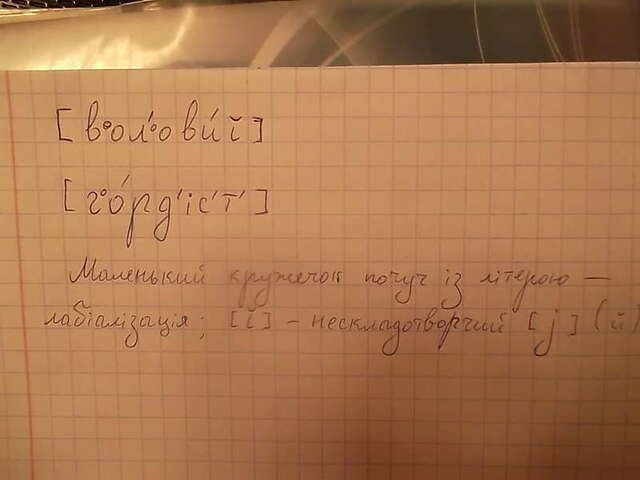 [в°ол°ови́ĭ]
[г°о́рд′іс′т′]
Маленький кружечок поруч із літерою —
лабіалізація; [ĭ] – нескладотворчий [j] (й)